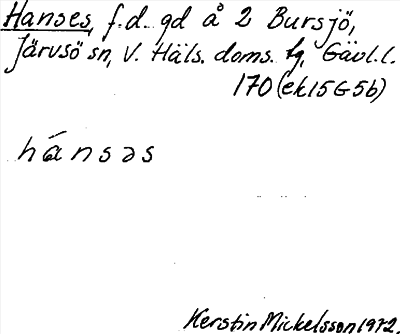 Hanses, f.d. gd å 2 Bursjö,
Järvsö sn, V. Häls. doms. tg, Gävl.l.
170 (ek15G5b)
hánsəs
Kerstin Mickelsson 1972.